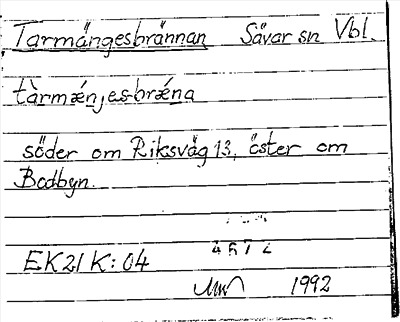 Tarmängesbrännan Sävar sn Vbl.
tàrmǽnjes-brǽna
söder om Riksväg 13, öster om
Bodbyn.
4672
EK21K:04
1992